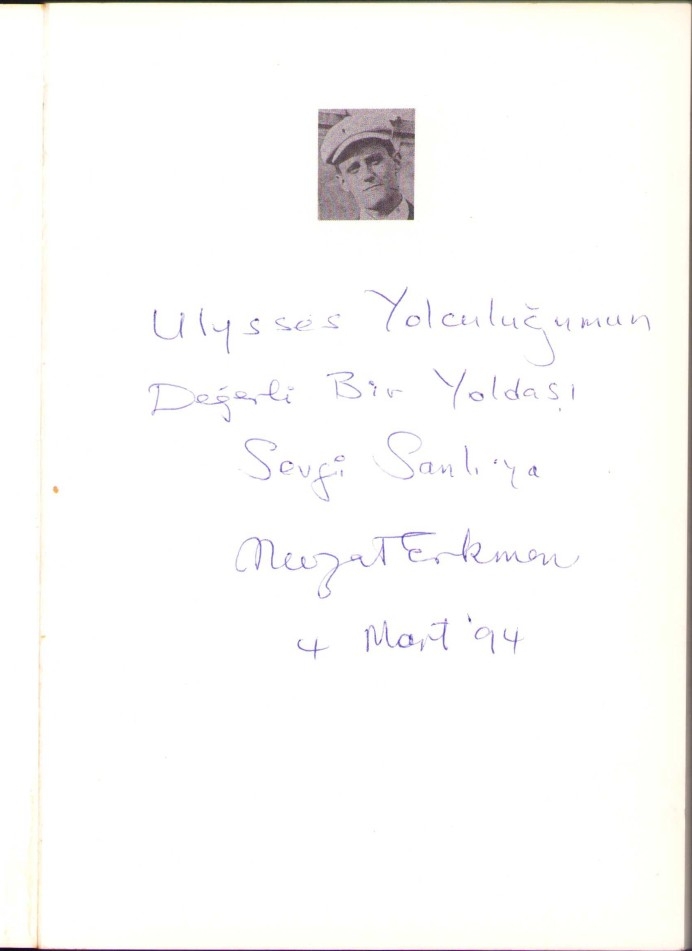 Ulysses Yolculuğumun
Değerli Bir Yoldaşı
Sevgi Sanlı'ya
Nevzat Erkmen
4 Mart '94